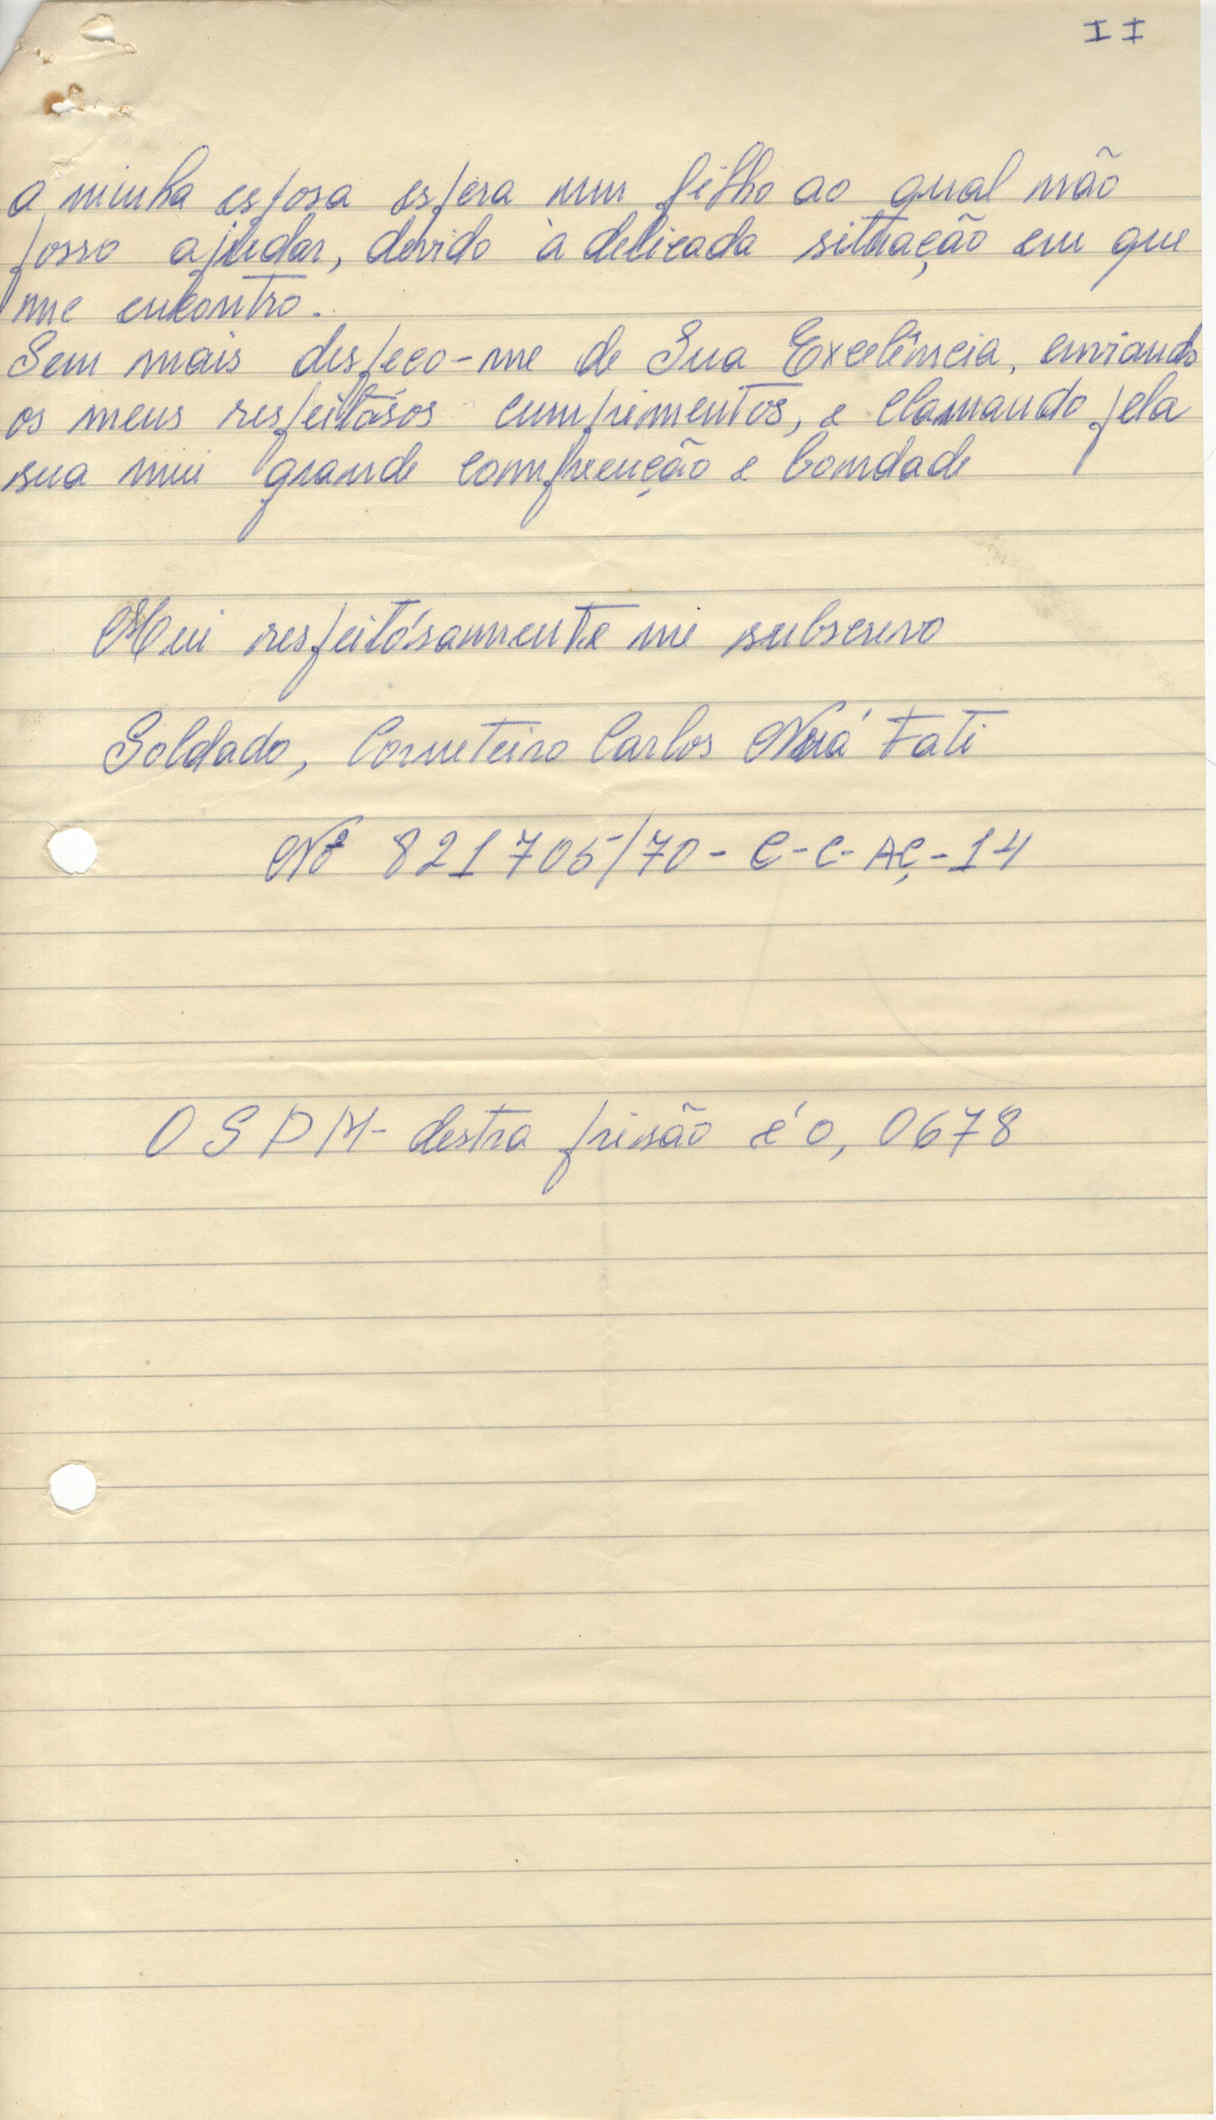 II
a minha esposa espera um filho ao qual não
posso ajudar, devido à delicada situação em que
me encontro.
Sem mais despeço-me de Sua Exelência, enviando
os meus respeitósos cumprimentos, e clamando pela
sua mui grande comprenção e bondade
Mui respeitósamente me subscrevo
Soldado, Corneteiro Carlos Fati
Nº 821705/70 - C - C - AÇ - 14
O S P M - destra prisão é o, 0678